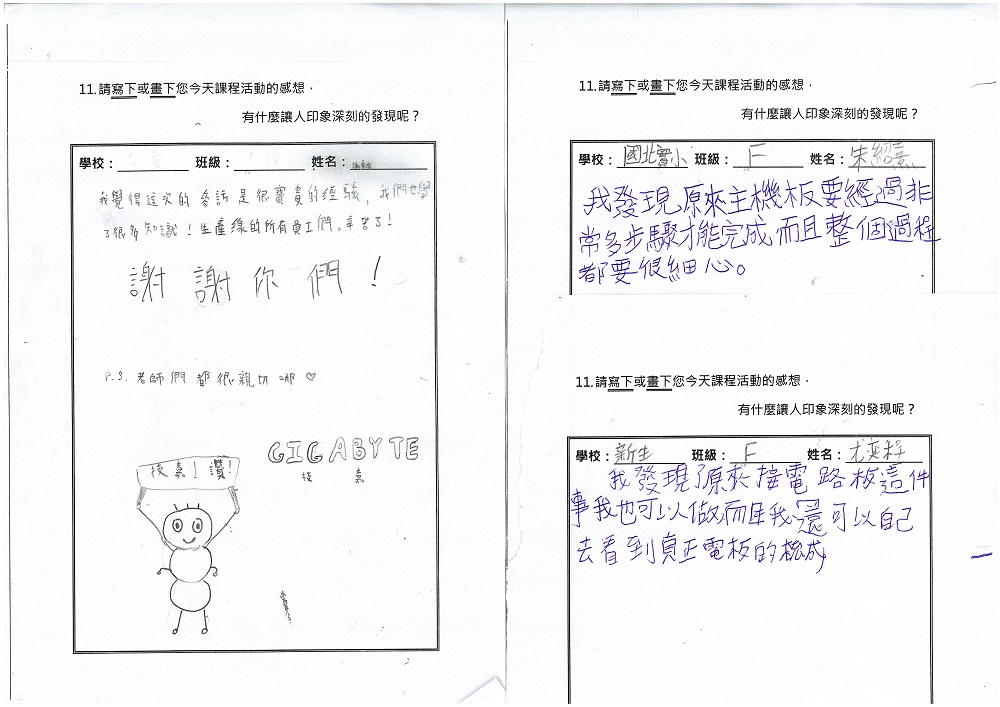 11.請寫下或畫下您今天課程活動的感想，
有什麼讓人印象深刻的發現呢？
學校： 班級： 姓名：
我覺得這次的參訪是很寶貴的經驗，我們也學
了很多知識！生產線的所有員工們，辛苦了！
謝謝你們！
P.S. 老師們都很親切呦♡
GIGABYTE
技嘉
技嘉｜讚！
11.請寫下或畫下您今天課程活動的感想，
有什麼讓人印象深刻的發現呢？
學校：國北實小 班級：F 姓名：朱紹熹
我發現原來主機板要經過非
常多步驟才能完成，而且整個過程
都要很細心。
11.請寫下或畫下您今天課程活動的感想，
有什麼讓人印象深刻的發現呢？
學校：新生 班級：F 姓名：尤奕程
我發現了原來接電路板這件
事我也可以做而且我還可以自己
去看到真正電板的機成